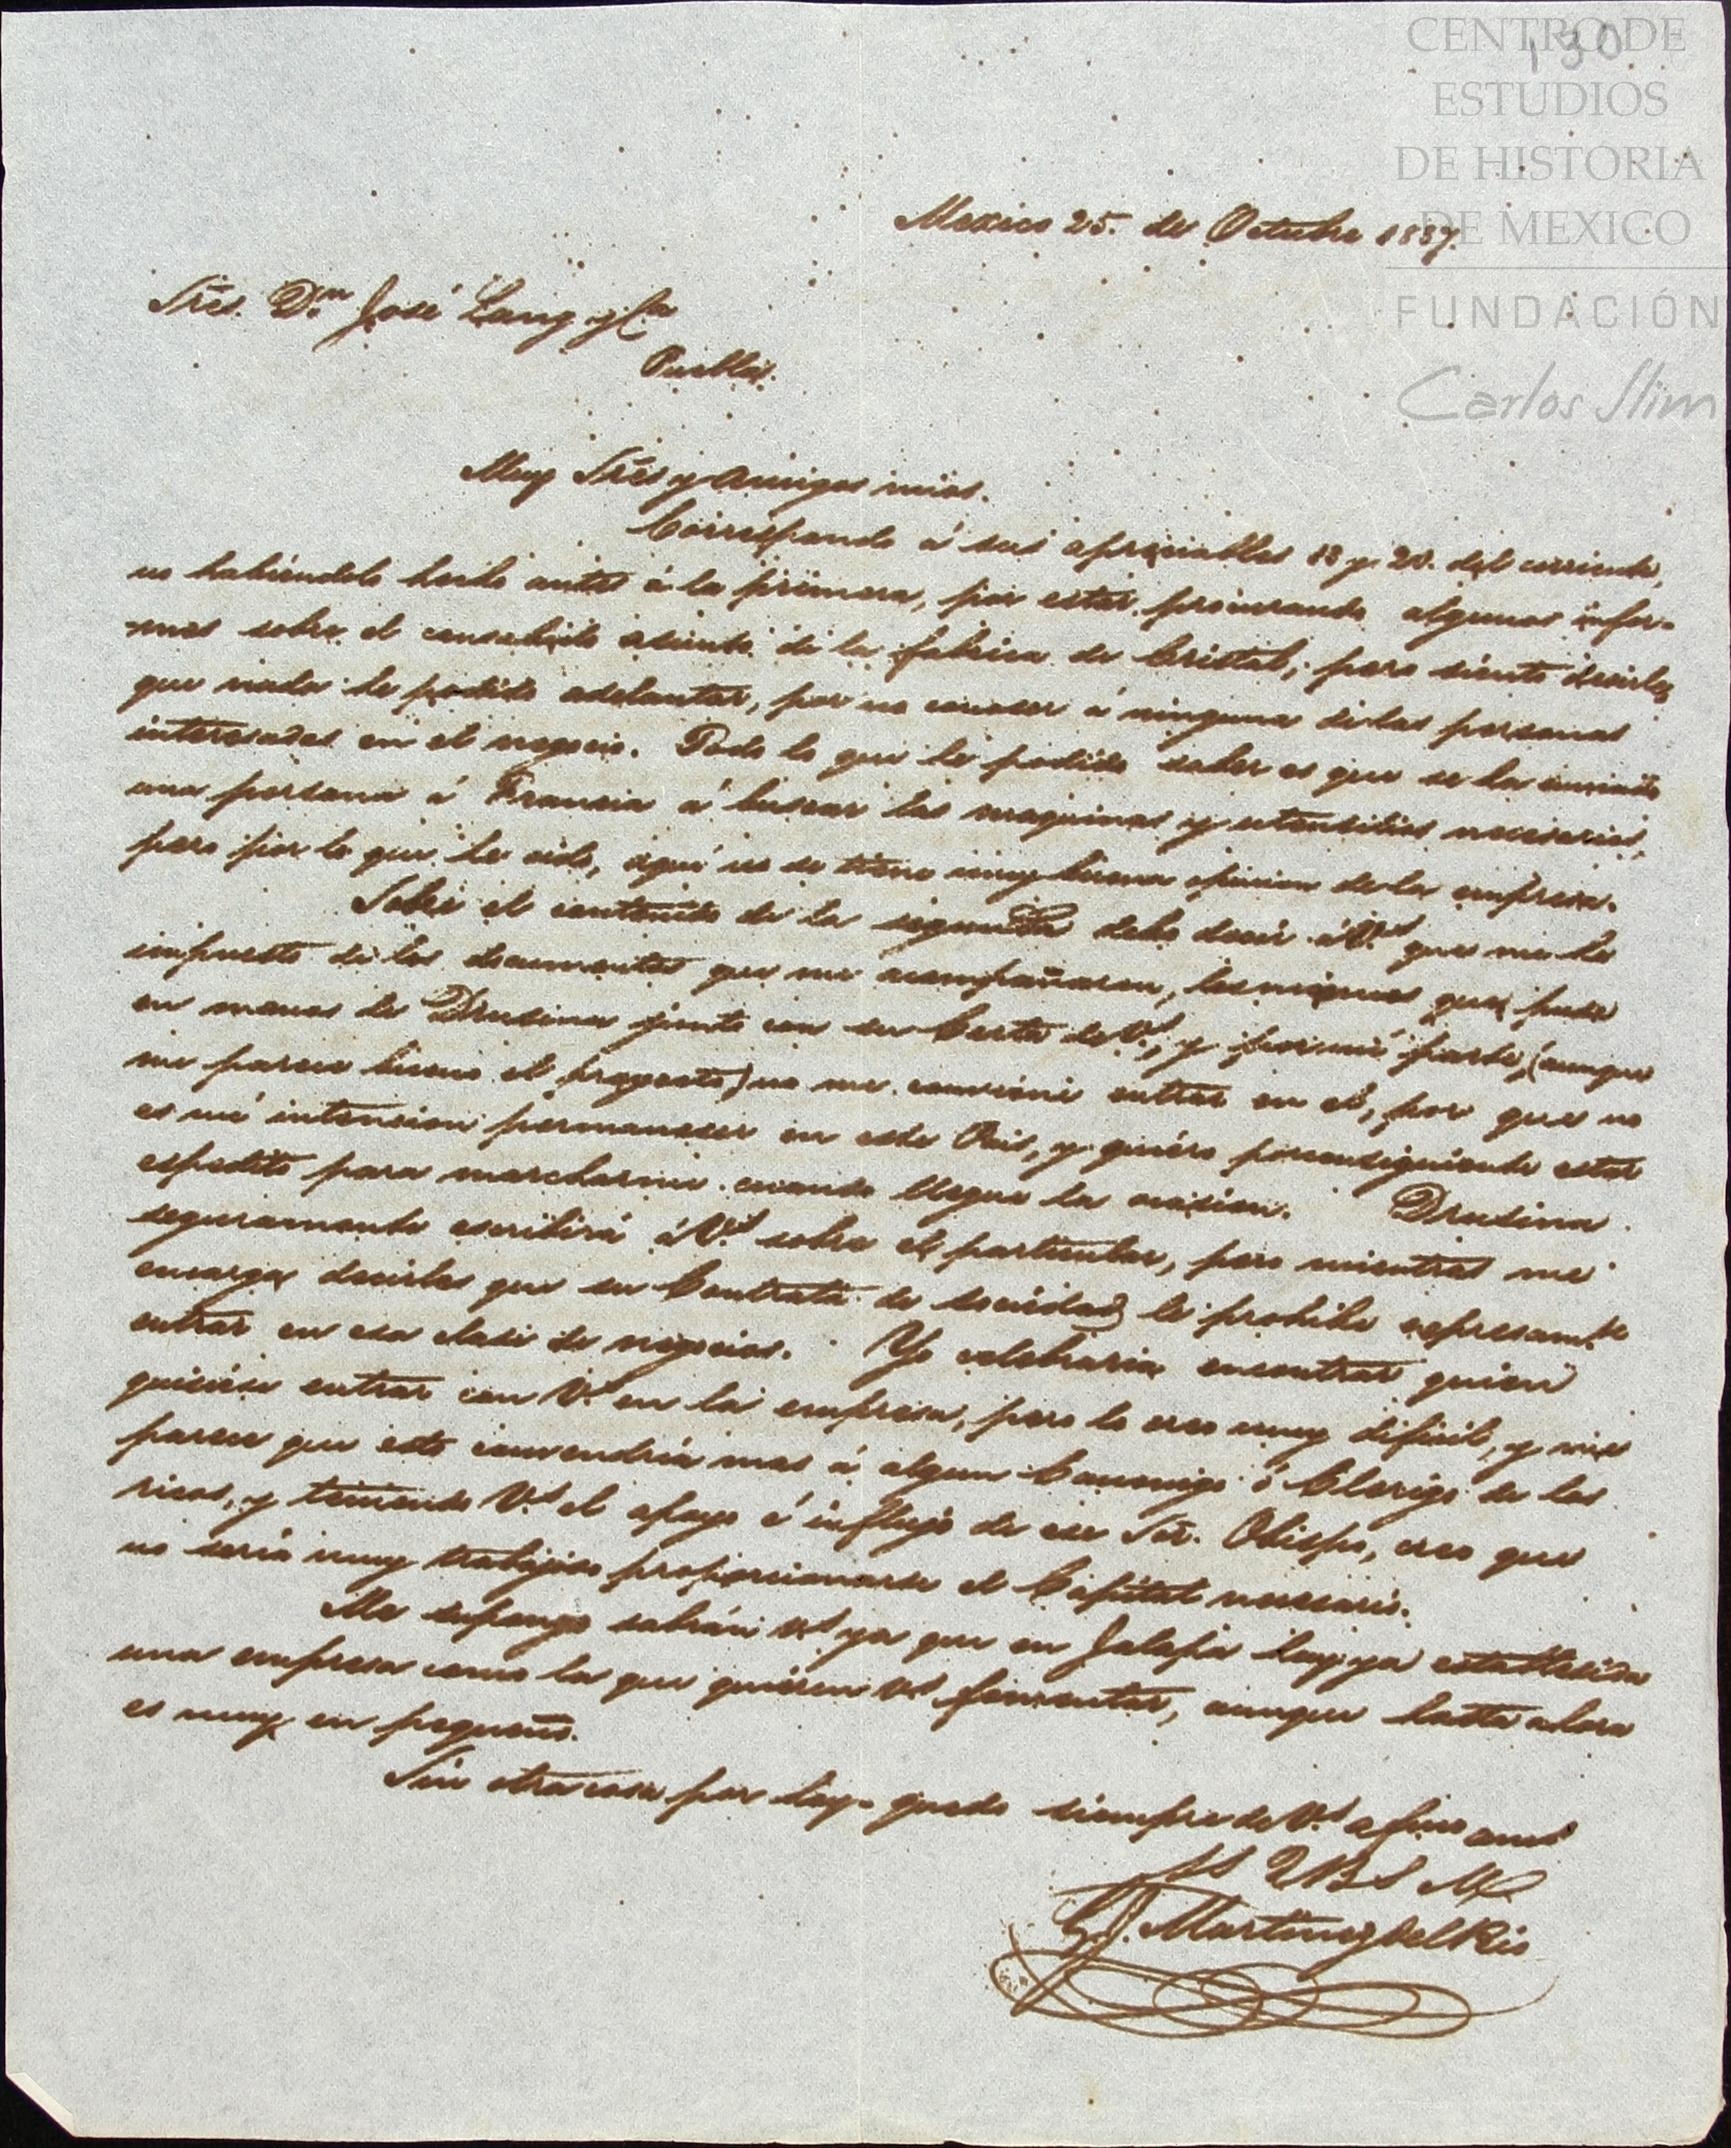 CENTRO DE
ESTUDIOS
DE HISTORIA
DE MEXICO
FUNDACIÓN
Carlos Slim
130
Mexico 25. de Octubre 1837.
Sres. Dn. José Lang y Ca
Puebla.
Muy Sres y Amigos mios.
Correspondo á sus apreciables 18 y 20. del corriente,
no habiendolo hecho antes á la primera, por estar procurando algunos infor-
mes sobre el consabido asiento de la fabrica de Cristal; pero siento decirles
que nada he podido adelantar, por no conocer á ninguna de las personas
interesadas en el negocio. Todo lo que he podido saber es que se ha enviado
una persona á Francia á buscar las maquinas y utensilios necesarios,
pero por lo que he oido, aquí no se tiene muy buena opinion de la empresa.
Sobre el contenido de la segunda debo decir á Vs. que me he
impuesto de los documentos que me acompañaron, los mismos que puse
en manos de Drusina junto con su Carta de Vs., y por mi parte, (aunque
me parece bueno el proyecto) no me conviene entrar en él, por que no
es mi intencion permanecer en este Pais, y quiero por consiguiente estar
espedito para marcharme cuando llegue la ocasion. Drusina
seguramente escribirá á Vs. sobre el particular, pero mientras me
encarga decirles que su Contrata de sociedad le prohibe espresamte.
entrar en esa clase de negocios. Yo celebraria encontrar quien
quisiese entrar con Vs. en la empresa, pero lo creo muy dificil, y me
parece que esto convendría mas á algun Canonigo ó Clerigo de los
ricos, y teniendo Vs. el apoyo é influjo de ese Sor. Obispo, creo que
no sería muy trabajoso proporcionarse el Capital necesario.
Me supongo sabrán Vs. ya que en Jalapa hay ya establecida
una empresa como la que quieren Vs. fomentar, aunque hasta ahora
es muy en pequeño.
Sin otra cosa por hoy quedo siempre de Vs. afmo amo
SS QBSM
G. J. Martinez del Rio